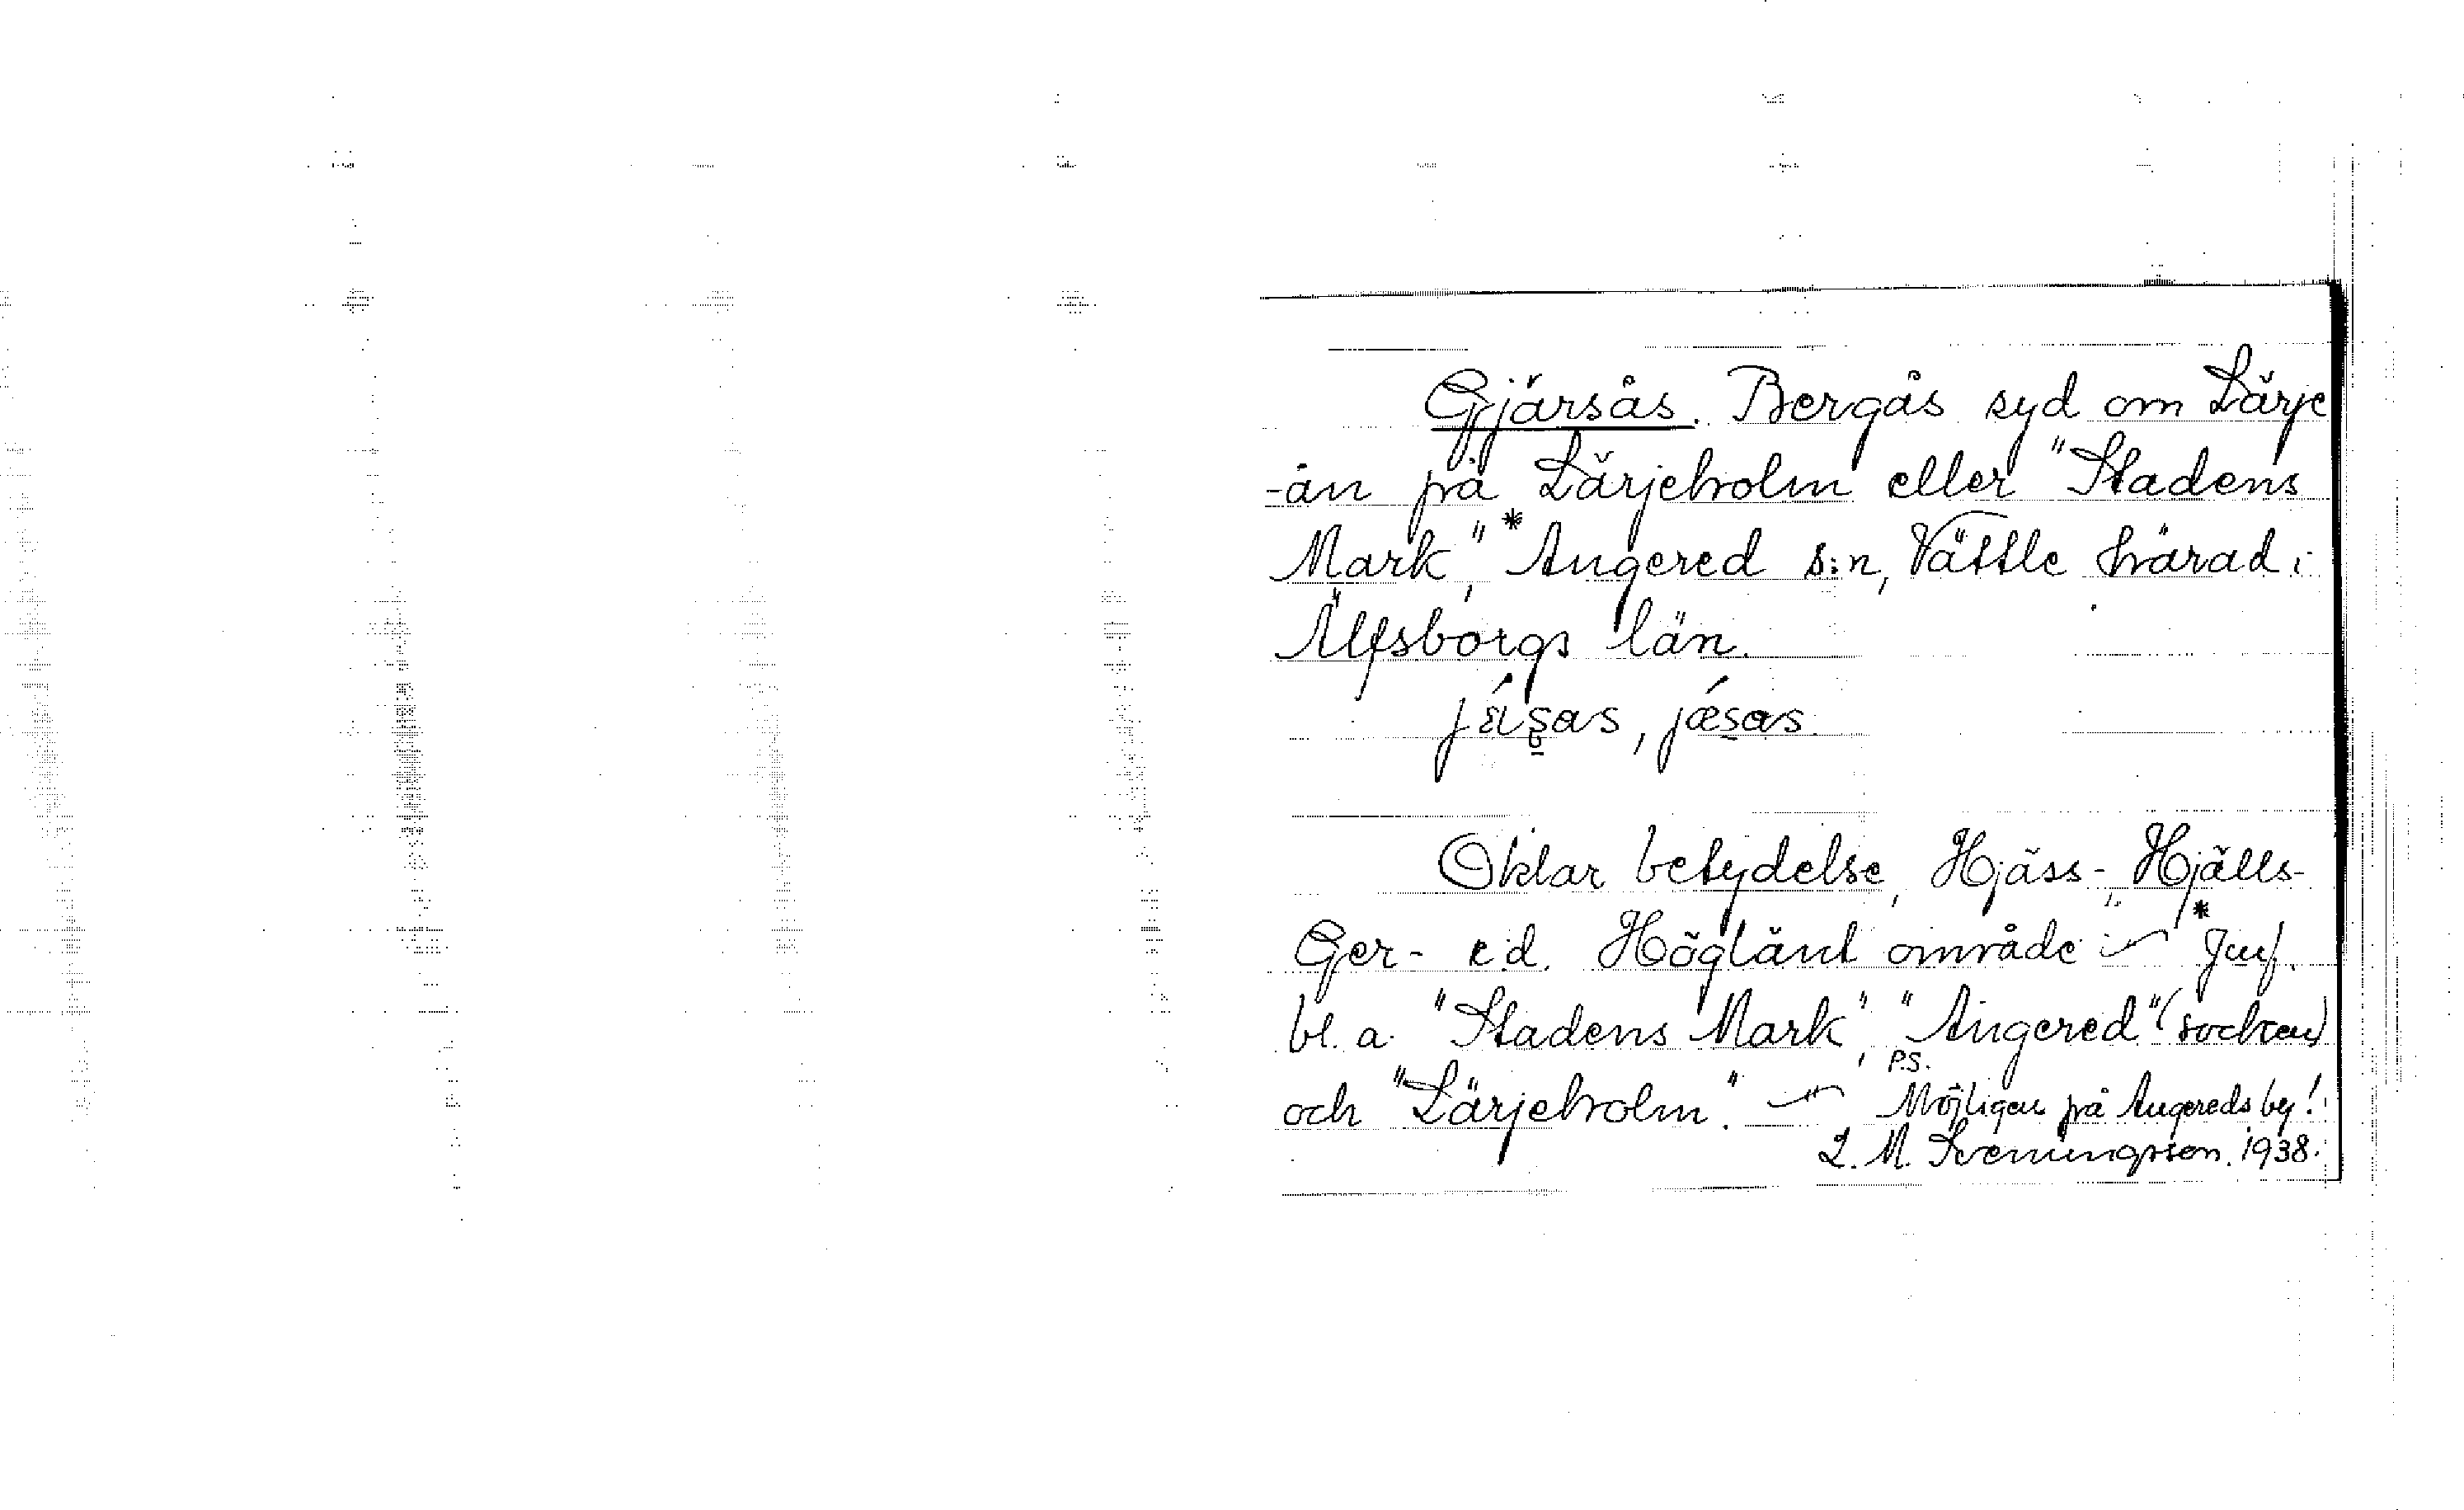 Gjärsås. Bergås syd om Lärje
-ån på Lärjeholm eller "Stadens
Mark",* Angered s:n, Vättle härad i
Älfsborgs län.
Oklar betydelse, Hjäss-, Hjälls-
Ger- e.d. Högländ område *Jmf.
bl. a. "Stadens Mark", "Angered" (socken)
och "Lärjeholm". P.S. Möjligen på Angereds by!
L. M. Svenungsson. 1938.